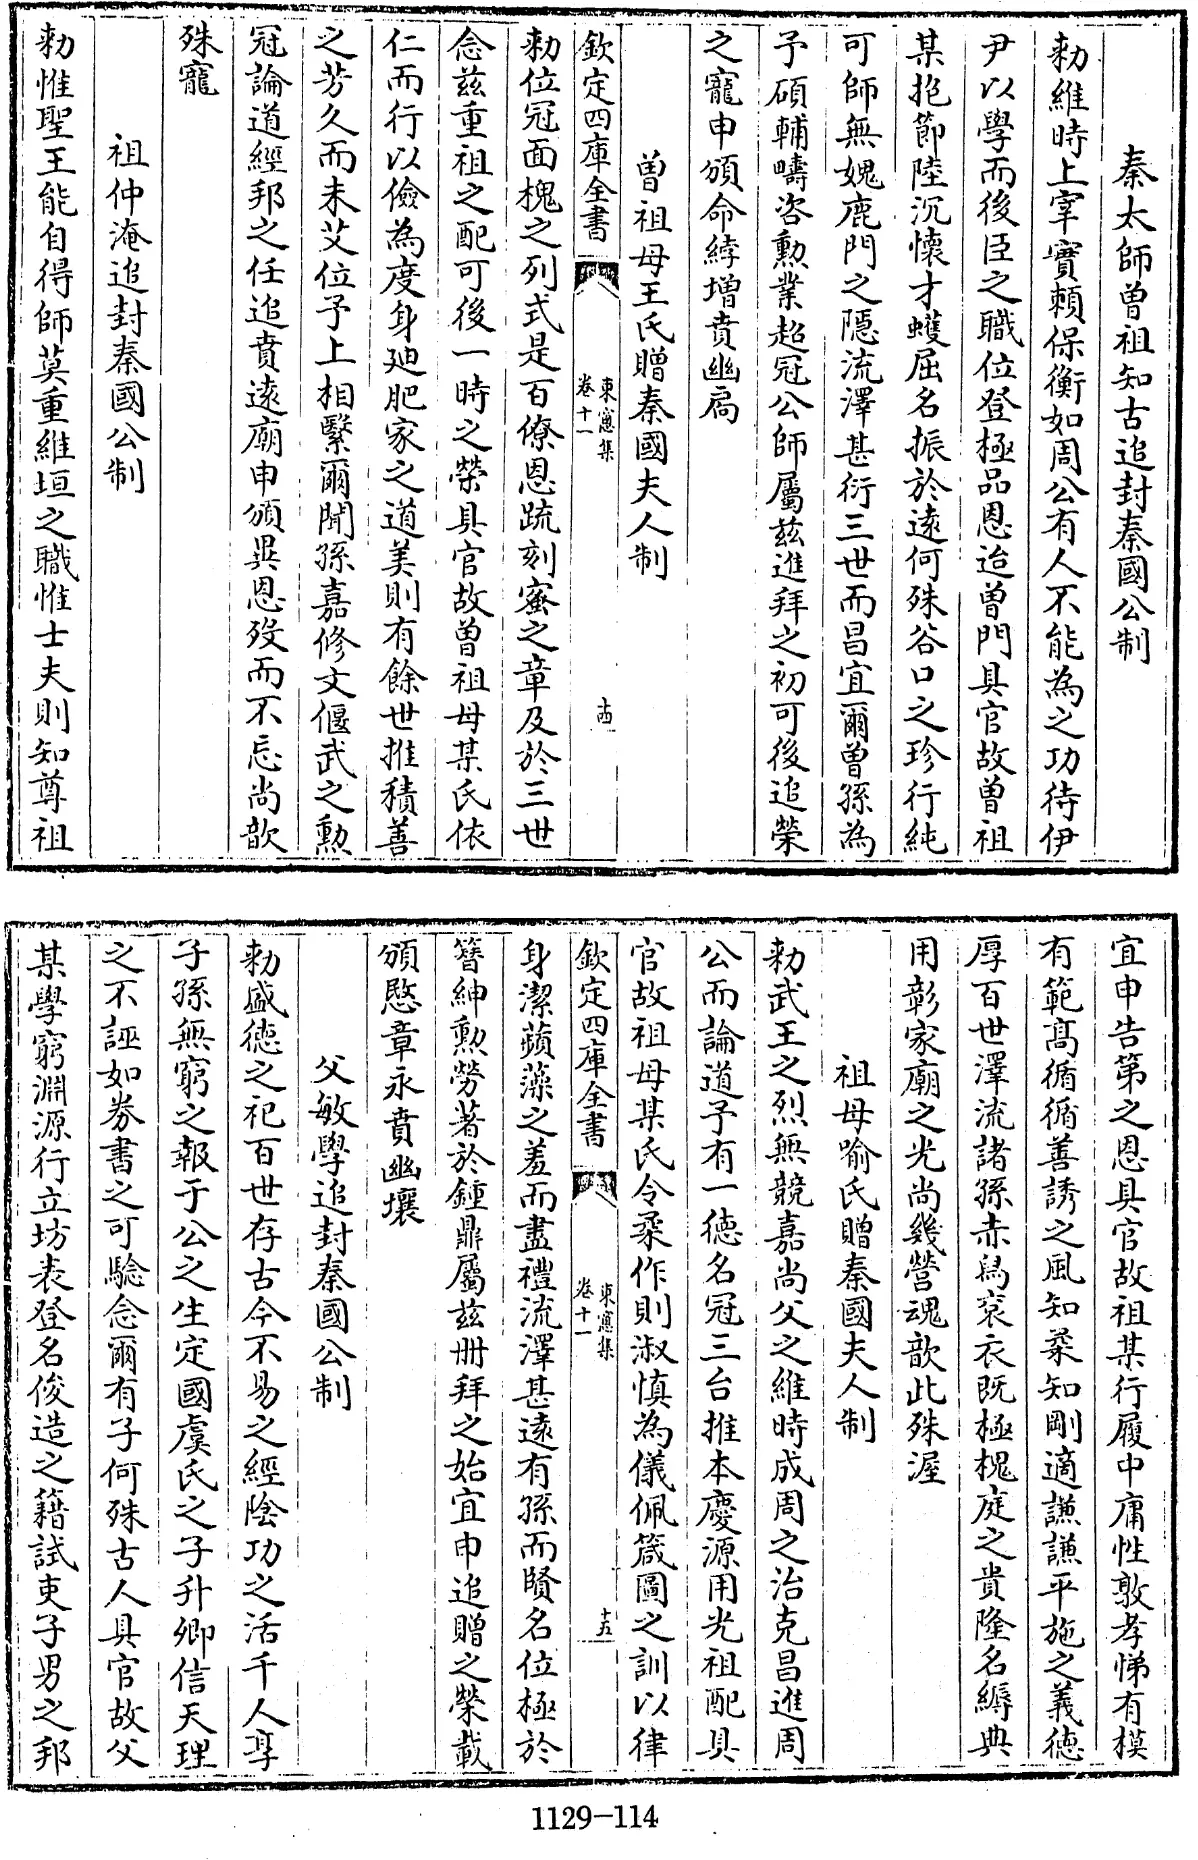 秦太師曽祖知古追封秦國公制
勑維時上宰實頼保衡如周公有人不能為之功待伊
尹以學而後臣之職位登極品恩迨曽門具官故曽祖
某抱節陸沉懐才蠖屈名振於逺何殊谷口之珍行純
可師無媿鹿門之隠流澤甚衍三世而昌宜爾曽孫為
予碩輔疇咨勲業超冠公師屬兹進拜之初可後追榮
之寵申頒命綍増賁幽扃
曽祖母王氏贈秦國夫人制
欽定四庫全書
東窻集
卷十一
十四
勑位冠面槐之列式是百僚恩疏刻蜜之章及於三世
念兹重祖之配可後一時之榮具官故曽祖母某氏依
仁而行以儉為度身廸肥家之道美則有餘世推積善
之芳久而未艾位予上相繄爾聞孫嘉修文偃武之勲
冠論道經邦之任追賁逺廟申頒異恩歿而不忘尚歆
殊寵
祖仲淹追封秦國公制
勑惟聖王能自得師莫重維垣之職惟士夫則知尊祖
宜申告第之恩具官故祖某行履中庸性敦孝悌有模
有範髙循循善誘之風知柔知剛適謙謙平施之義徳
厚百世澤流諸孫赤舄衮衣既極槐庭之貴隆名縟典
用彰家廟之光尚幾營魂歆此殊渥
祖母喻氏贈秦國夫人制
勑武王之烈無競嘉尚父之維時成周之治克昌進周
公而論道予有一徳名冠三台推本慶源用光祖配具
官故祖母某氏令柔作則淑慎為儀佩箴圖之訓以律
欽定四庫全書
東窻集
卷十一
十五
身潔蘋藻之羞而盡禮流澤甚逺有孫而賢名位極於
簪紳勲勞著於鍾鼎屬兹冊拜之始宜申追贈之榮載
頒愍章永賁幽壤
父敏學追封秦國公制
勑盛徳之祀百世存古今不易之經隂功之活千人享
子孫無窮之報于公之生定國虞氏之子升卿信天理
之不誣如券書之可驗念爾有子何殊古人具官故父
某學窮淵源行立坊表登名俊造之籍試吏子男之邦
1129-114